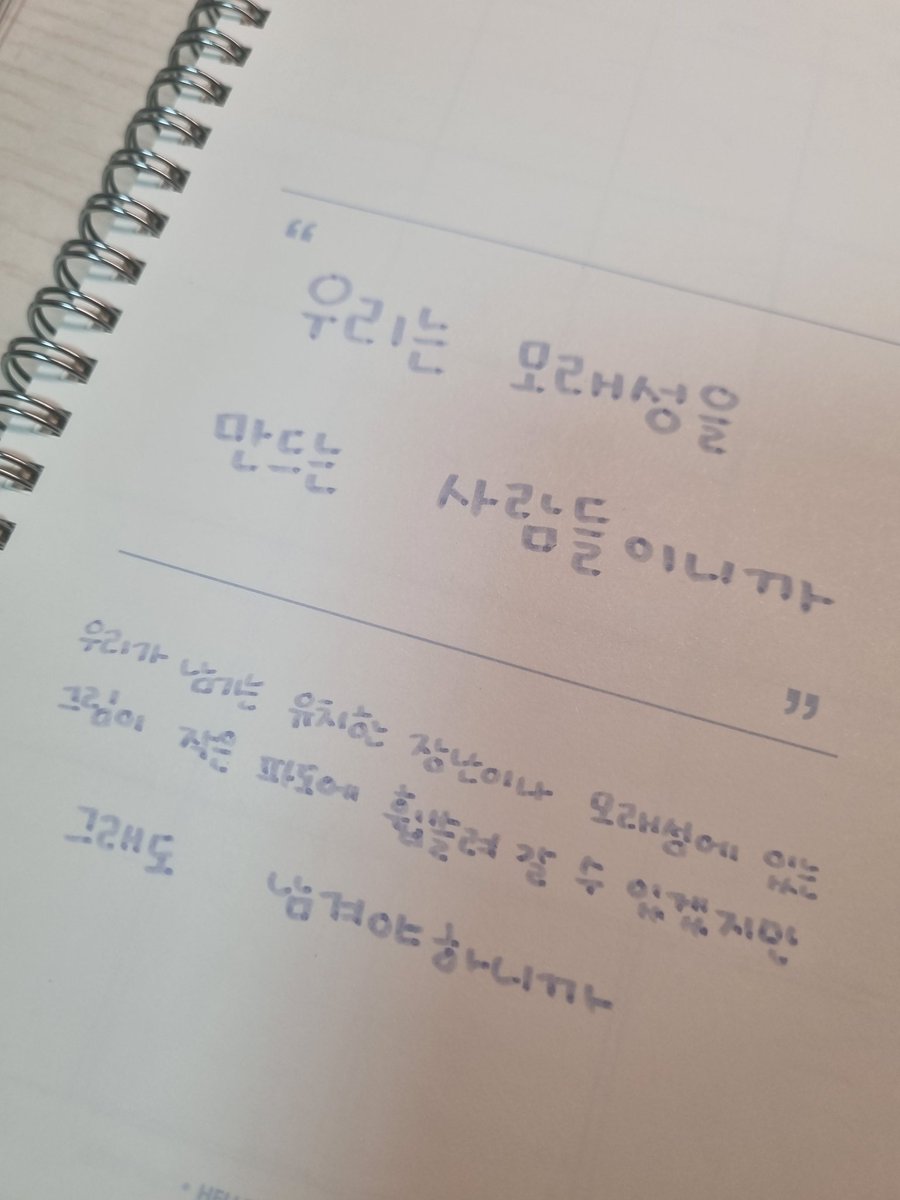 “
우리는 모래성을
만드는 사람들이니까
”
우리가 남긴 유치한 장난이나 모래성에 있는
그림이 작은 파도에 휩쓸려 갈 수 있겠지만
그래도